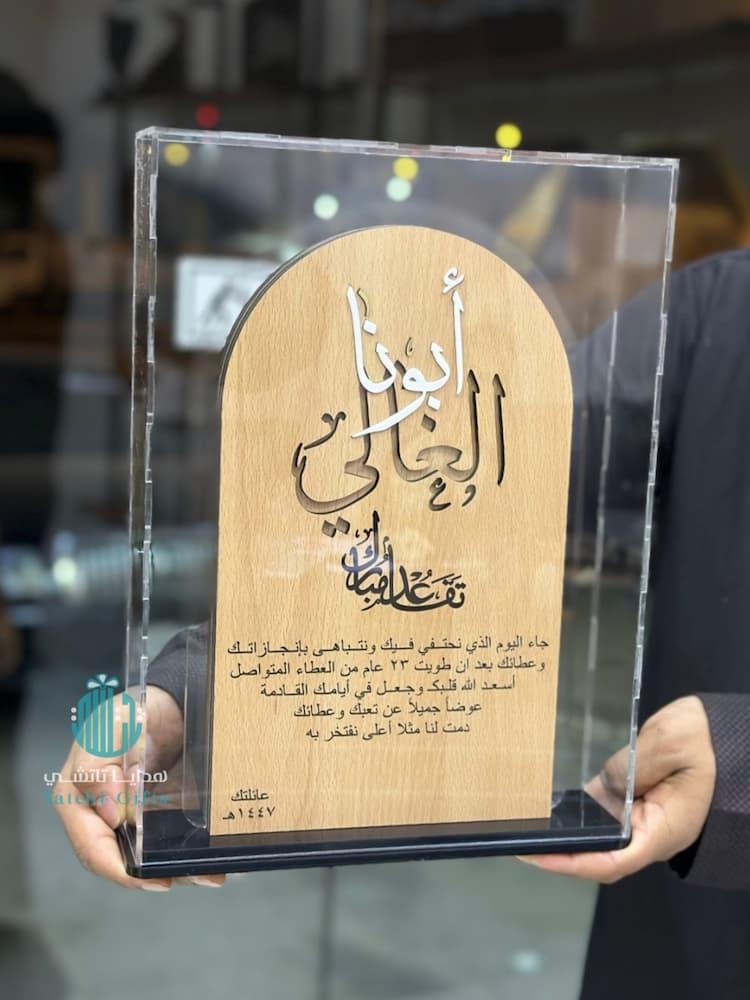 أبونا
الغالي
تقاعد مبارك
جاء اليوم الذي نحتفي فيك ونتباهى بإنجازاتك
وعطائك بعد ان طويت ٢٣ عام من العطاء المتواصل
أسعد الله قلبك وجعل في أيامك القادمة
عوضاً جميلاً عن تعبك وعطائك
دمت لنا مثلا أعلى نفتخر به
عائلتك
١٤٤٧هـ
هدايا تاتشي
Tatchi Gifts